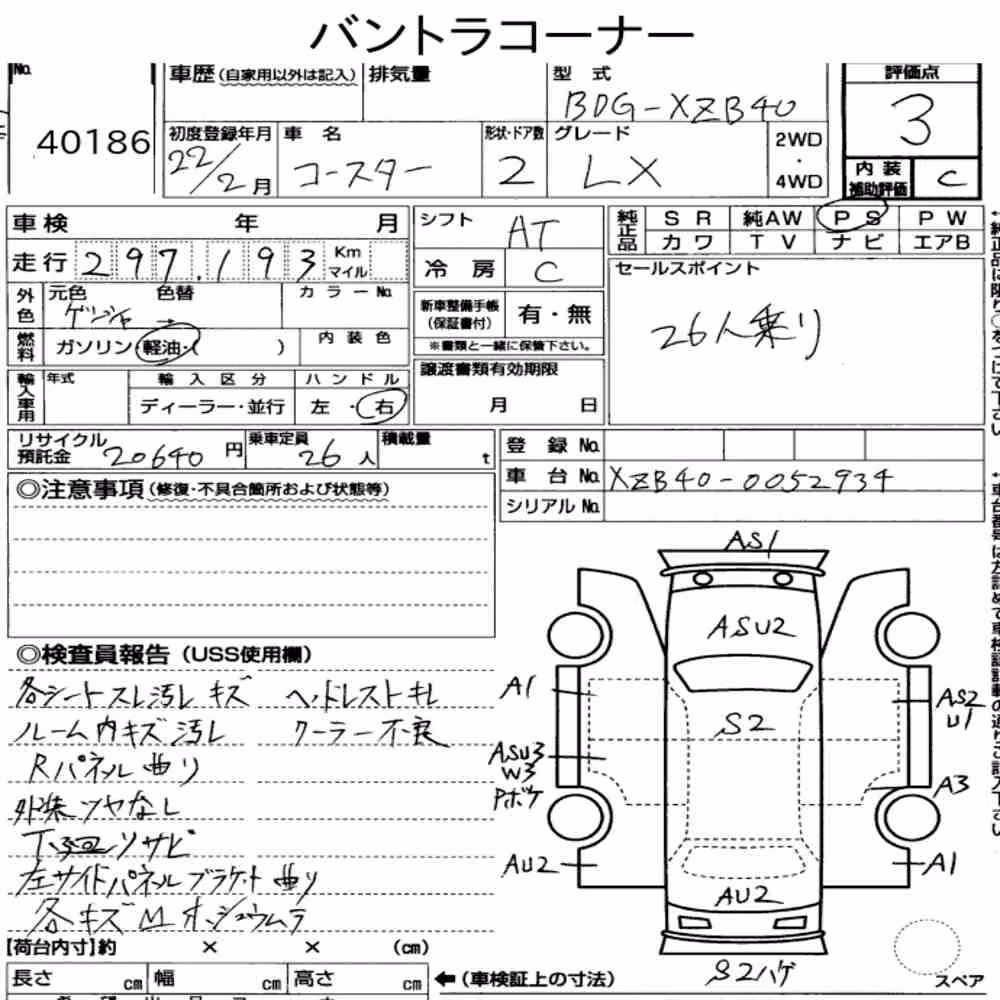 バントラコーナー
No. 40186
車歴 (自家用以外は記入) 排気量 型式 BDG-XZB40
評価点 3
初度登録年月 22/2月 車名 コースター 形状・ドア数 2 グレード LX 2WD・4WD
内装補助評価 C
車検 年 月 シフト AT
純正品 SR 純AW PS PW
カワ TV ナビ エアB
走行 297,193 Km マイル 冷房 C
セールスポイント
26人乗り
外色 元色 色替 カラーNo.
新車整備手帳(保証書付) 有・無
※書類と一緒に保管下さい。
燃料 ガソリン・軽油・( ) 内装色
譲渡書類有効期限
月 日
輸入車用 年式 輸入区分 ハンドル
ディーラー・並行 左・右
リサイクル預託金 20640円 乗車定員 26人 積載量 t
登録No.
車台No. XZB40-0052934
シリアルNo.
◎注意事項 (修復・不具合箇所および状態等)
◎検査員報告 (USS使用欄)
各シートスレ汚レキズ ヘッドレストキレ
ルーム内キズ汚レ クーラー不良
Rパネル曲り
外装ツヤなし
下廻りサビ
左サイドパネルブラケット曲り
各キズ
AS1
ASU2
S2
A1
ASU3
W3
Pボケ
AU2
AS2
U1
A3
A1
AU2
S2ハゲ
【荷台内寸】約 × × (cm)
長さ cm 幅 cm 高さ cm
←(車検証上の寸法)
スペア